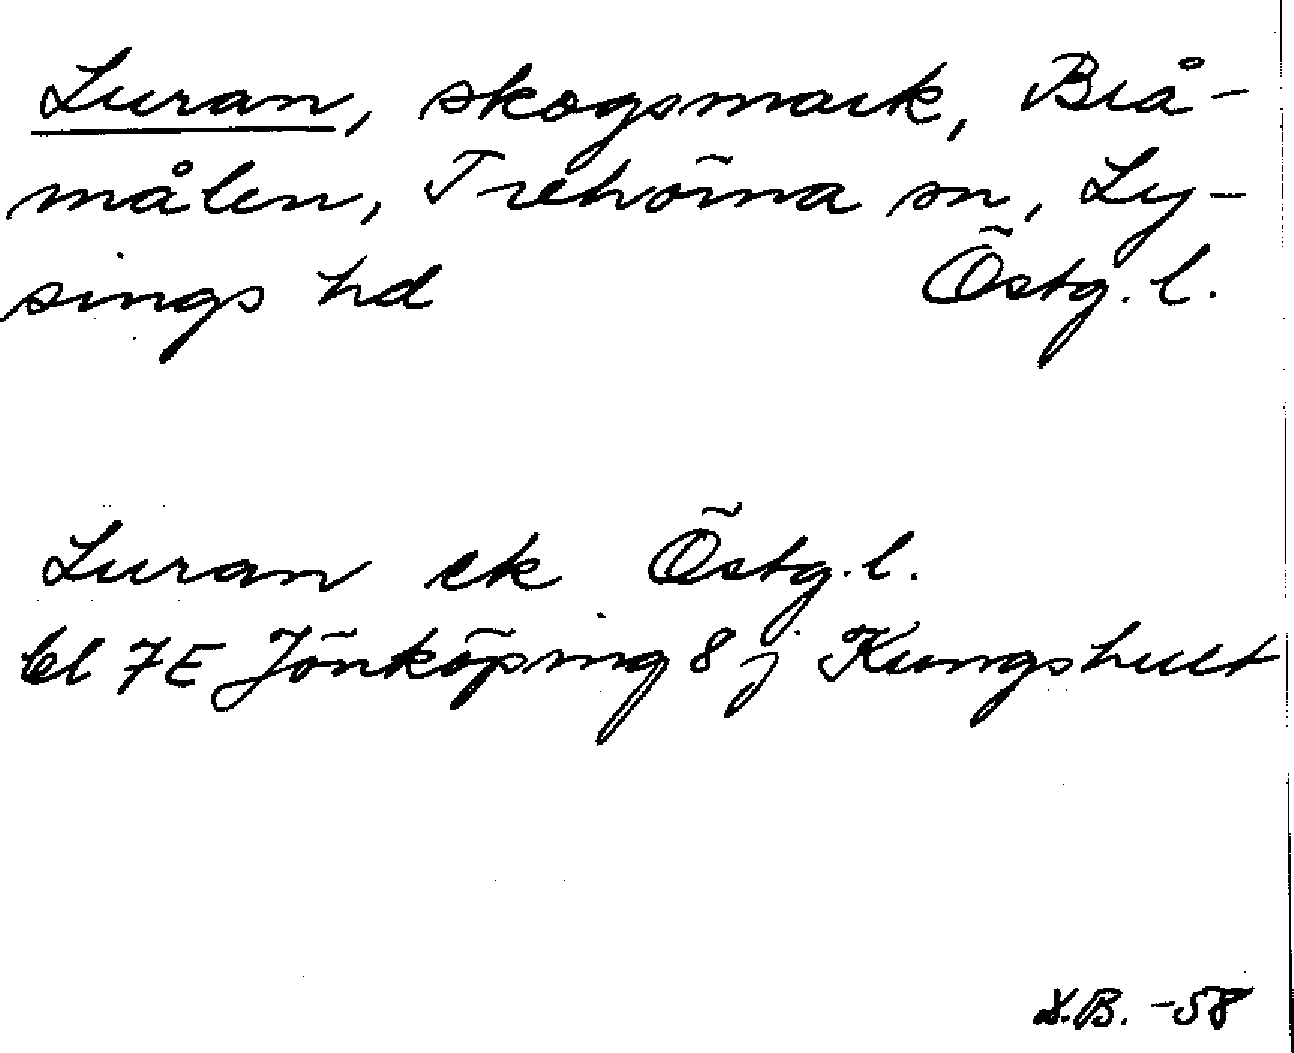 Luran, skogsmark, Brå-
målen, Trehörna sn, Ly-
sings hd Östg. l.
Luran ek Östg. l.
bl 7E Jönköping 8 j Kungshult
-58